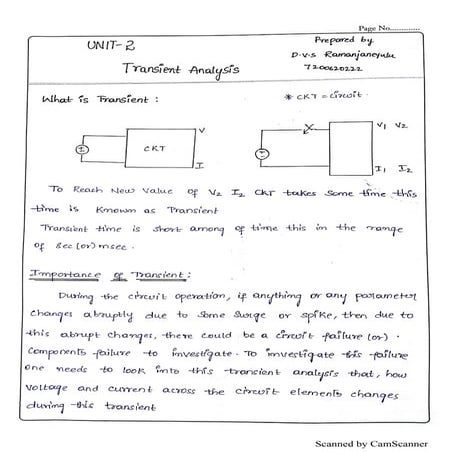 Page No............
UNIT-2
Prepared by
D.V.S Ramanjaneyulu
7200620222
Transient Analysis
What is Transient :
* CKT = Circuit
CKT
V
I
V1 V2
I1 I2
To Reach New Value of V2 I2 CKT takes Some time this
time is Known as Transient
Transient time is short among of time this in the range
of sec (or) msec.
Importance of Transient :
During the circuit operation, if anything or any parameter
changes abruptly due to Some Surge or spike, then due to
this abrupt changes, there could be a circuit failure (or).
Components failure to investigate. To investigate this failure
one needs to look into this transient analysis that, how
voltage and current across the circuit elements changes
during this transient
Scanned by CamScanner